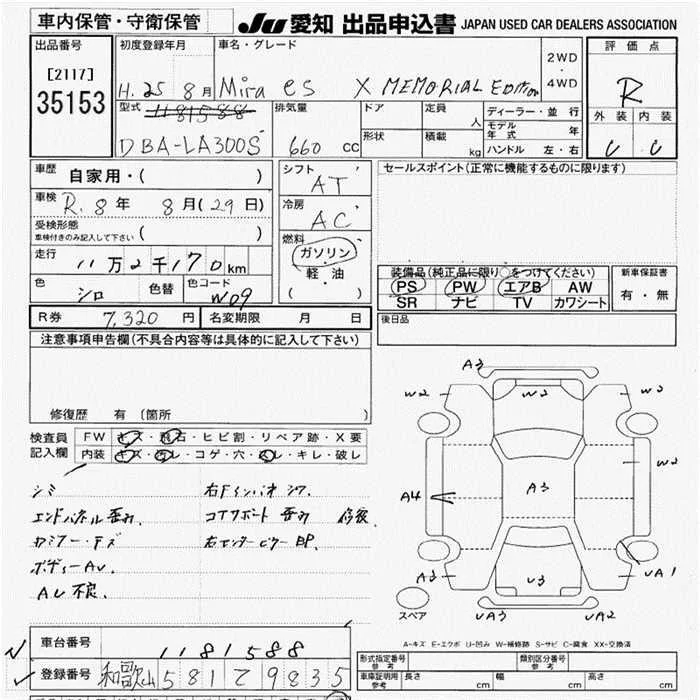 車内保管・守衛保管 JU 愛知 出品申込書 JAPAN USED CAR DEALERS ASSOCIATION
出品番号 初度登録年月 車名・グレード 2WD ・ 4WD 評価点
[2117] 35153 H.25 8月 Mira es X MEMORIAL EDition R
型式 1181588 排気量 ドア 定員 人 ディーラー・並行 外装 内装
DBA-LA300S 660 cc 形状 積載 kg モデル年式 年
ハンドル 左・右 C C
車歴 自家用・( ) シフト AT セールスポイント(正常に機能するものに限ります)
車検 R.8年 8月(29日) 冷房 AC
受検形態 車検付きのみ記入して下さい ( )
燃料 ガソリン・軽油 ( )
走行 11万2千170km
装備品(純正品に限り○をつけてください) 新車保証書
色 シロ 色替 色コード W09 PS PW エアB AW 有・無
SR ナビ TV カワシート
R券 7,320円 名変期限 月 日 後日品
注意事項申告欄(不具合内容等は具体的に記入して下さい)
修復歴 有 (箇所 )
検査員記入欄 FW キズ・飛石・ヒビ割・リペア跡・X要
内装 キズ・汚レ・コゲ・穴・スレ・キレ・破レ
シミ
エンドパネル歪み.
ボディーAU.
AU 不良.
コアサポート 歪み 修復
A3
W2 W2 W3
A4 A3 W2
A3 U3 UA1
スペア UA3 UA2
A-キズ E-エクボ U-凹み W-補修跡 S-サビ C-腐食 XX-交換済
車台番号 1181588
登録番号 和歌山 581 て 9835
形式指定番号 参考 類別区分番号 参考
車庫証明用 参考 長さ cm 幅 cm 高さ cm